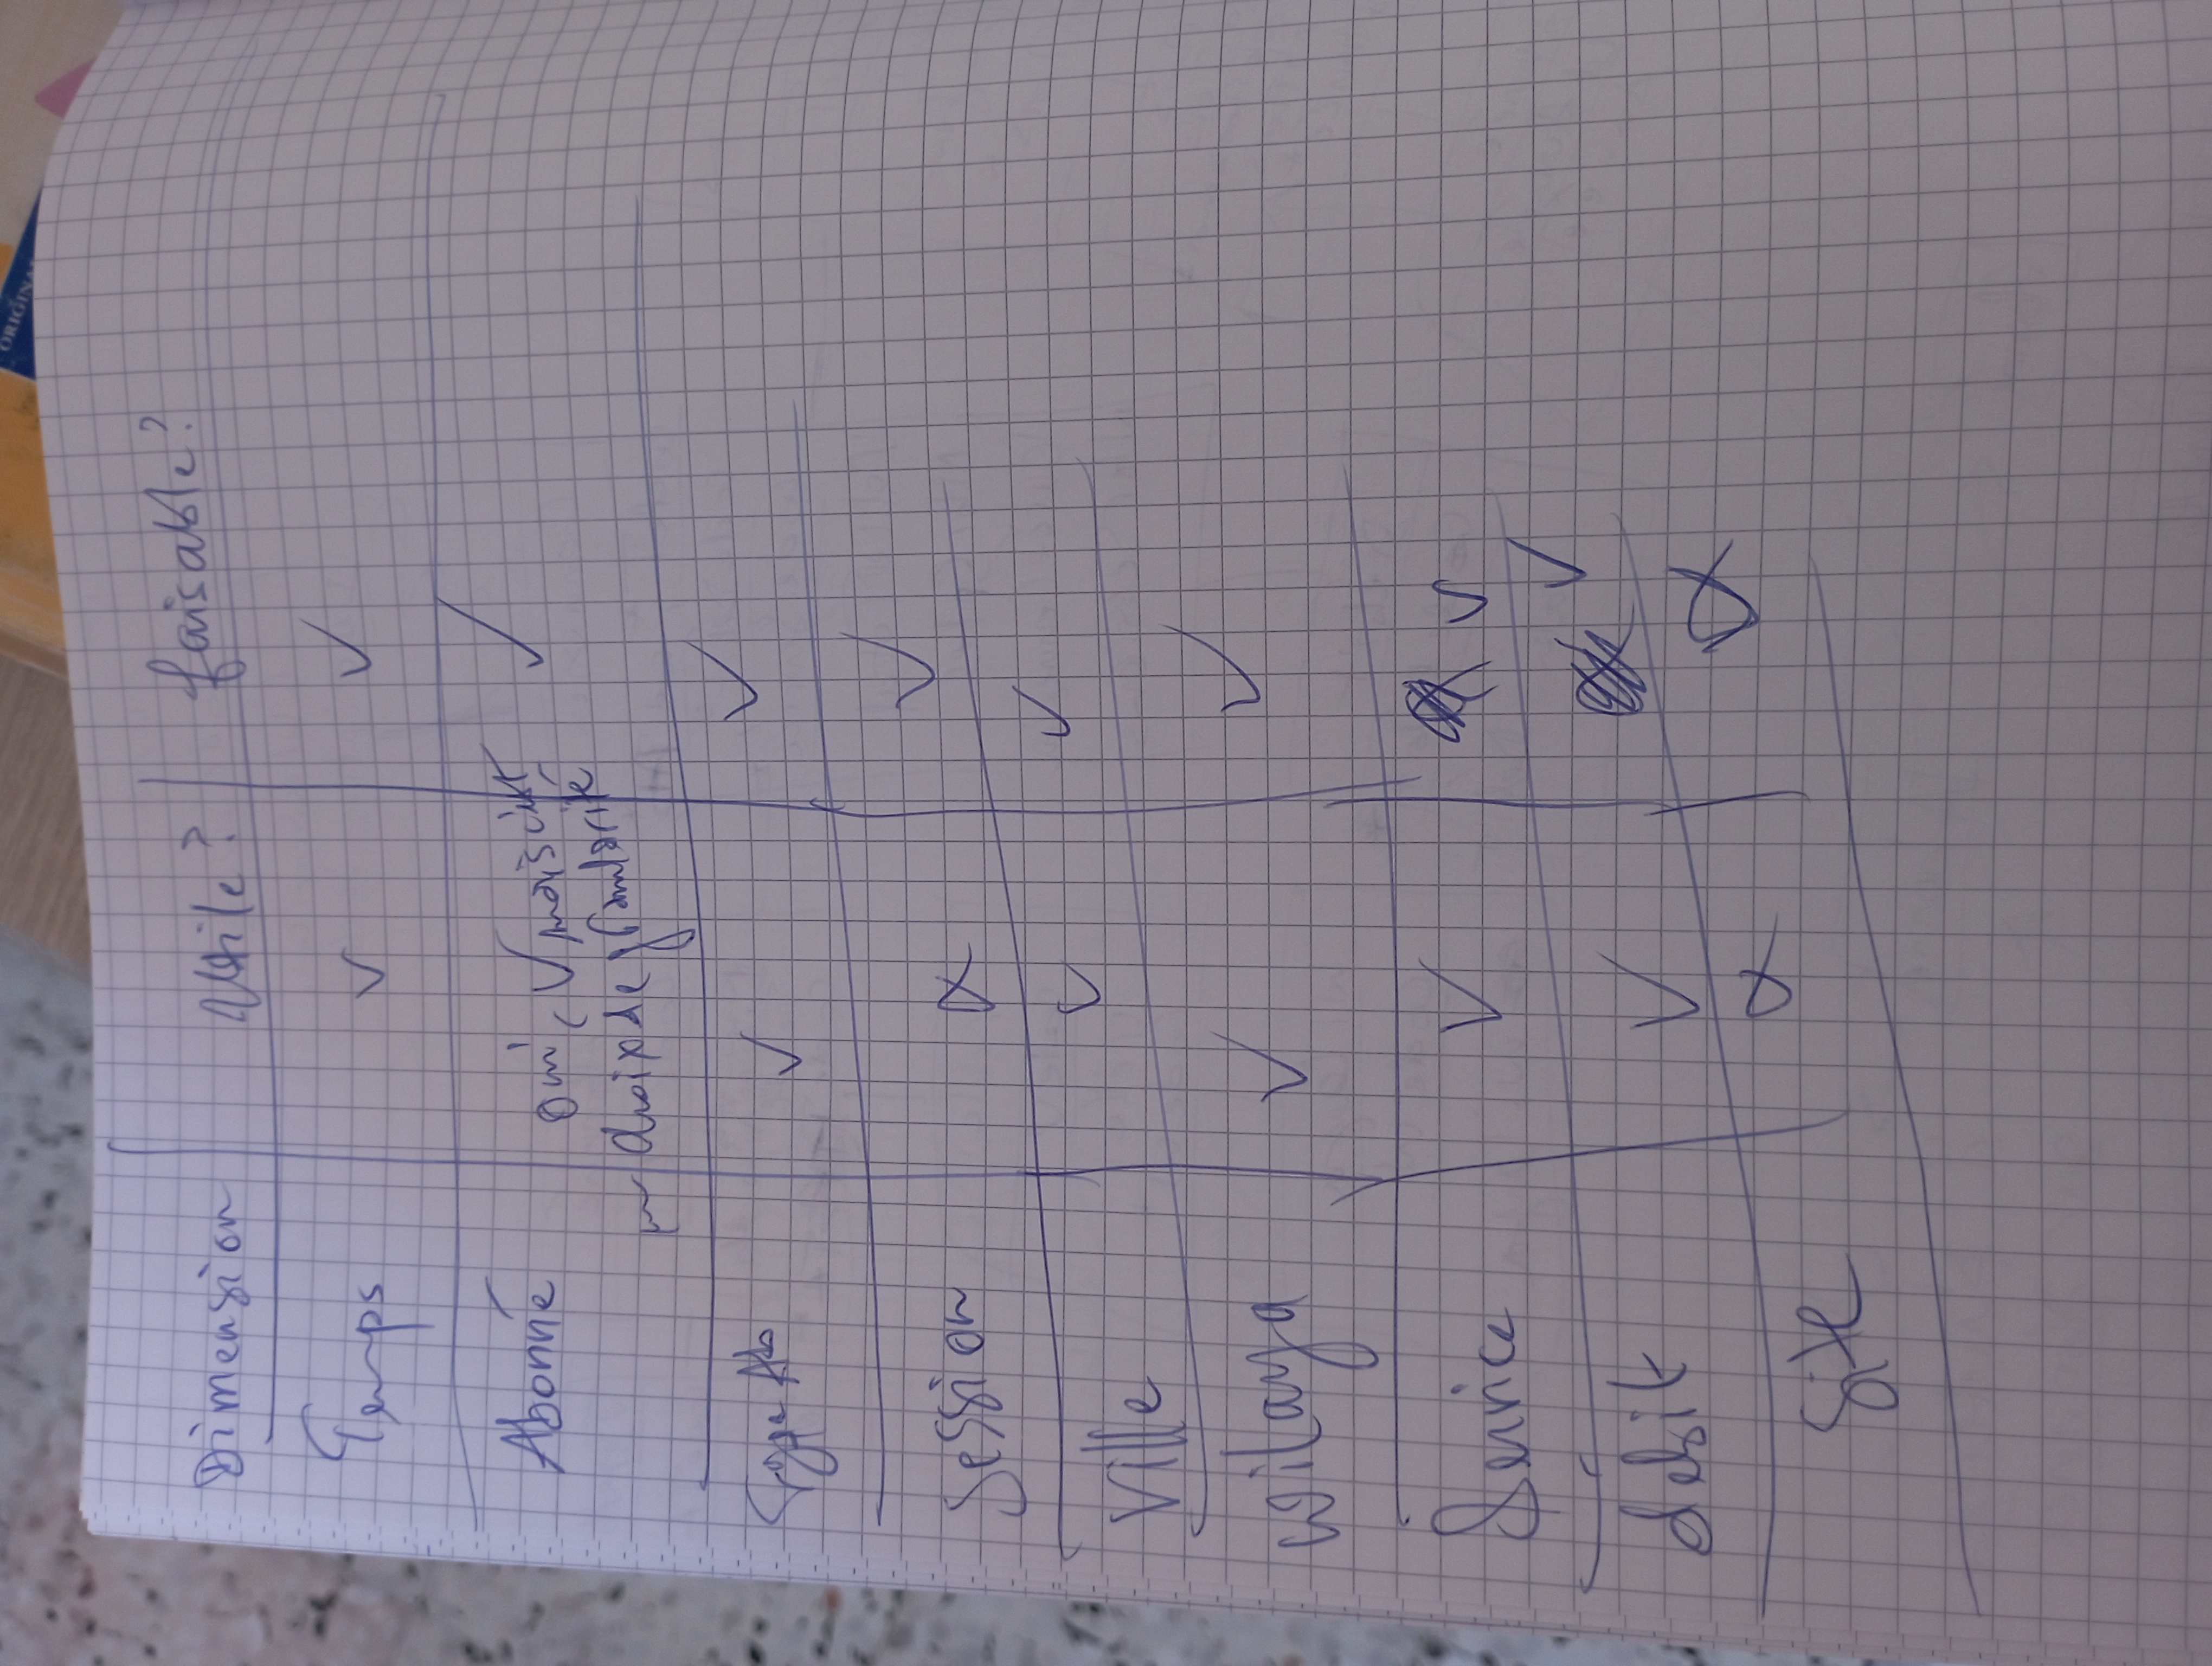 ORIGINAL
Dimension Utile? faisable?
Temps ✓ ✓
Abonné oui, ✓ mais c'est ✓
un choix de granularité
Type Ab ✓ ✓
Session x ✓
Ville ✓ ✓
wilaya ✓ ✓
Service ✓ ✓
debit ✓ ✓
Site x x